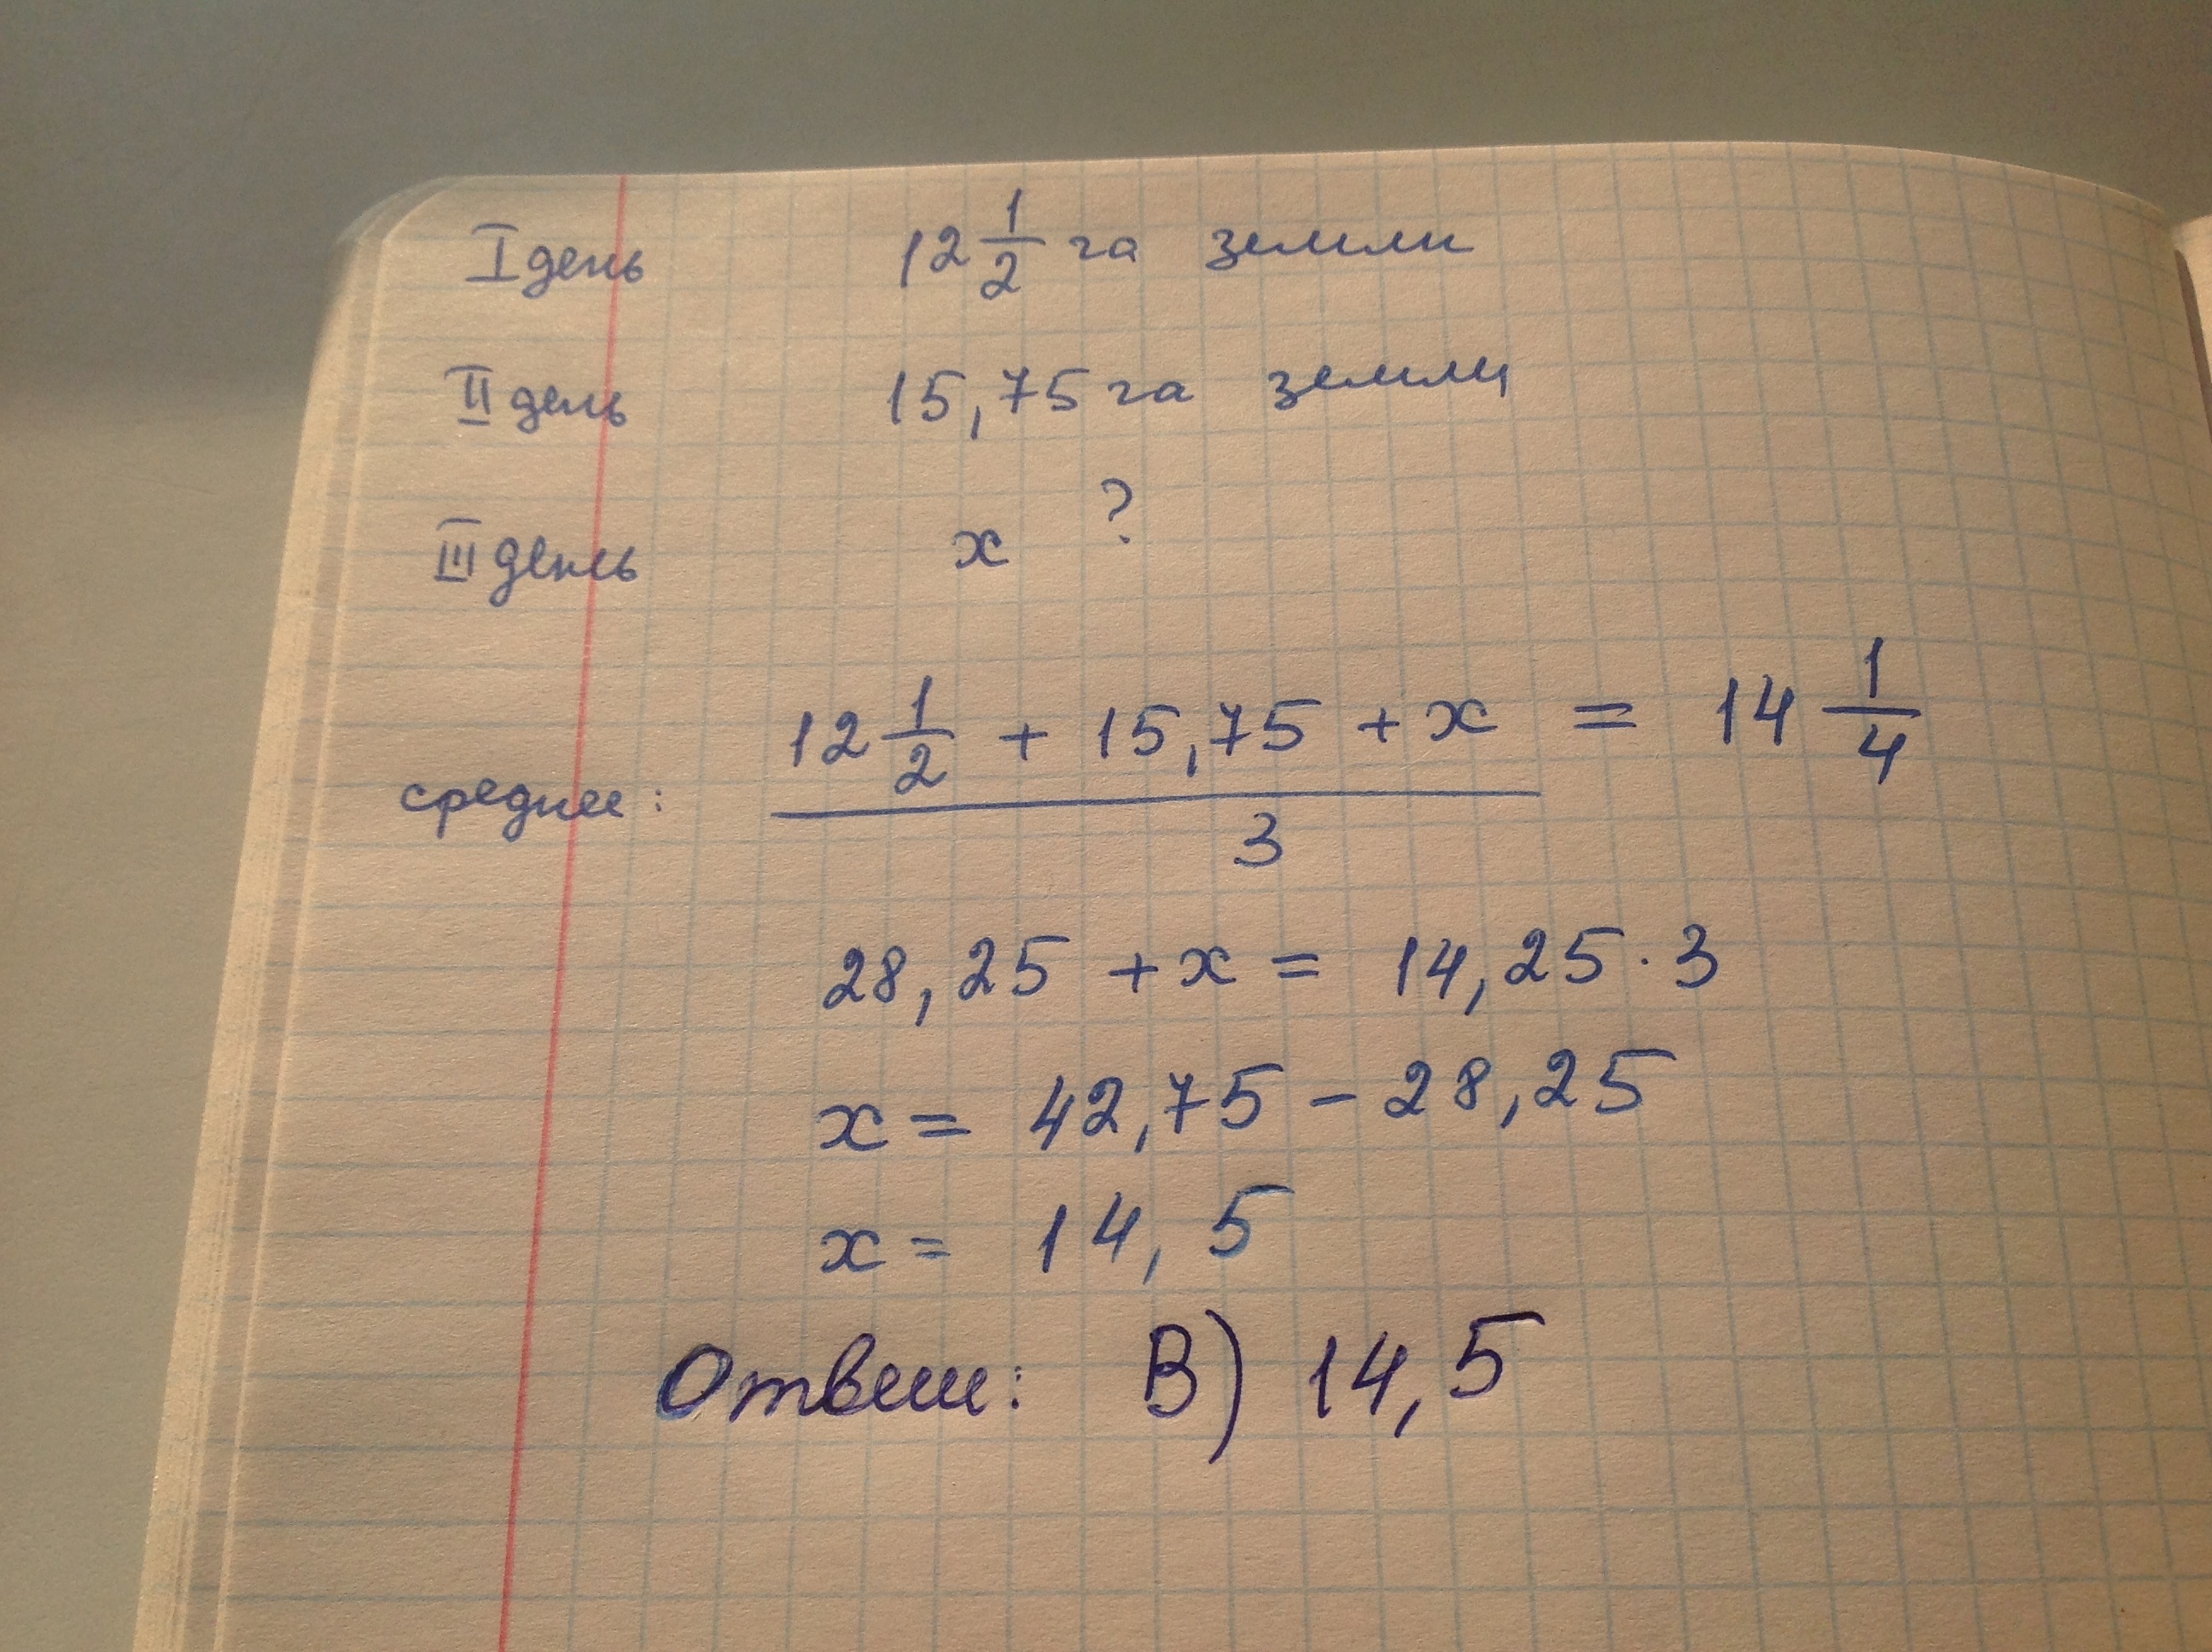 I день 12 1/2 га земли
II день 15,75 га земли
III день x ?
среднее: (12 1/2 + 15,75 + x)/3 = 14 1/4
28,25 + x = 14,25 · 3
x = 42,75 - 28,25
x = 14,5
Ответ: В) 14,5